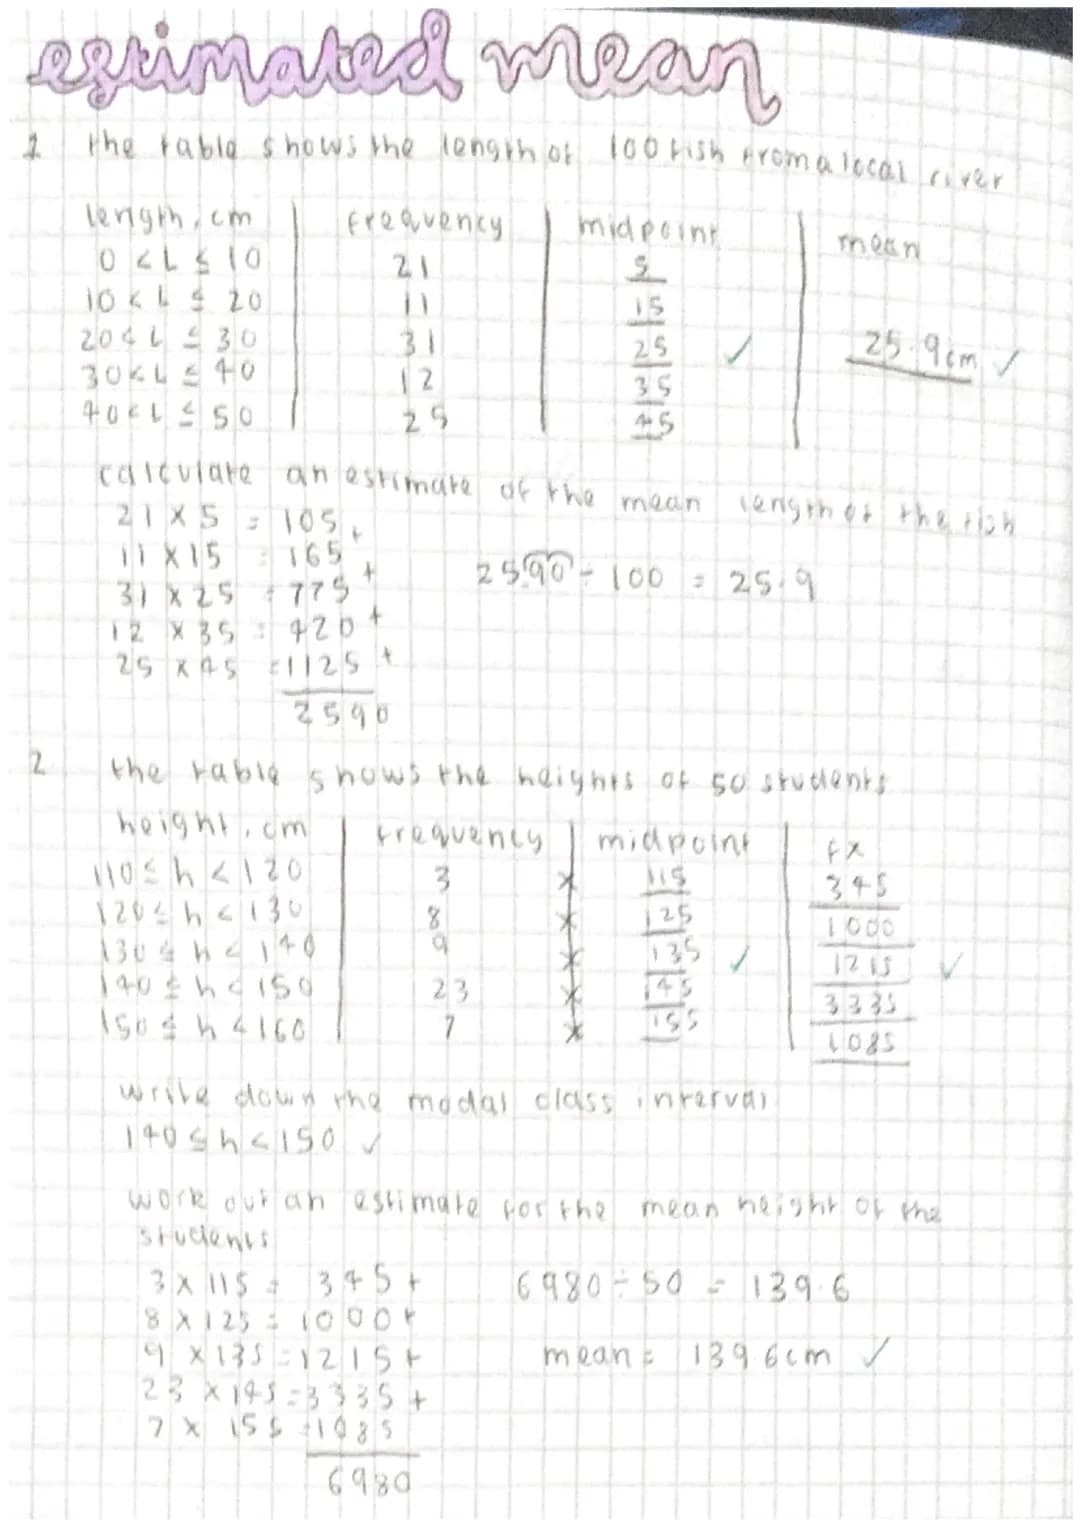 estimated mean
1 the table shows the length of 100 fish from a local river
length, cm | frequency | midpoint | mean
0 < L ≤ 10 21 5
10 < L ≤ 20 11 15
20 < L ≤ 30 31 25 ✓ 25.9cm ✓
30 < L ≤ 40 12 35
40 < L ≤ 50 25 45
calculate an estimate of the mean length of the fish
21 x 5 = 105 +
11 x 15 = 165 +
31 x 25 = 775 + 25.90 ÷ 100 = 25.9
12 x 35 = 420 +
25 x 45 = 1125
2590
2 the table shows the heights of 50 students
height, cm | frequency | midpoint | fx
110 ≤ h < 120 3 x 115 345
120 ≤ h < 130 8 x 125 1000
130 ≤ h < 140 9 x 135 ✓ 1215 ✓
140 ≤ h < 150 23 x 145 3335
150 ≤ h < 160 7 x 155 1085
write down the modal class interval
140 ≤ h < 150 ✓
work out an estimate for the mean height of the
students
3 x 115 = 345 + 6980 ÷ 50 = 139.6
8 x 125 = 1000 +
9 x 135 = 1215 + mean = 139.6cm ✓
23 x 145 = 3335 +
7 x 155 = 1085
6980